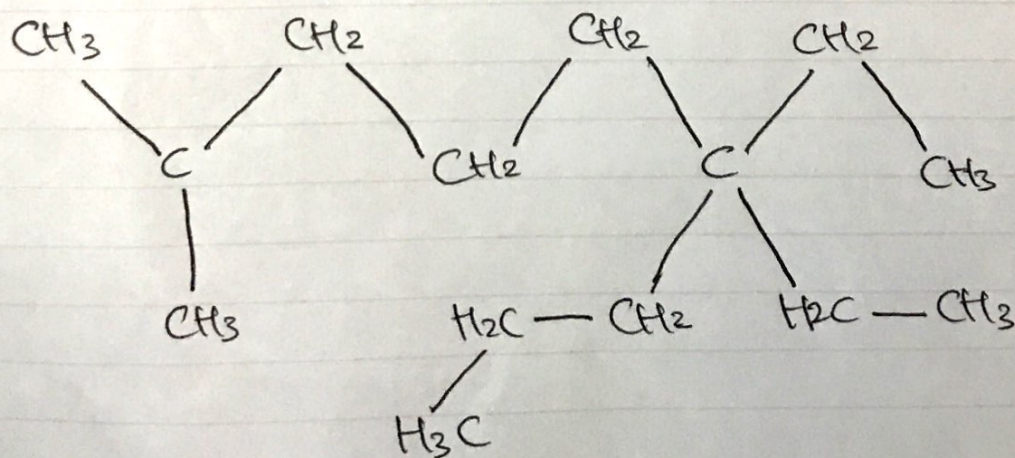 CH3 CH2 CH2 CH2
C CH2 C CH3
CH3 H2C — CH2 H2C — CH3
H3C